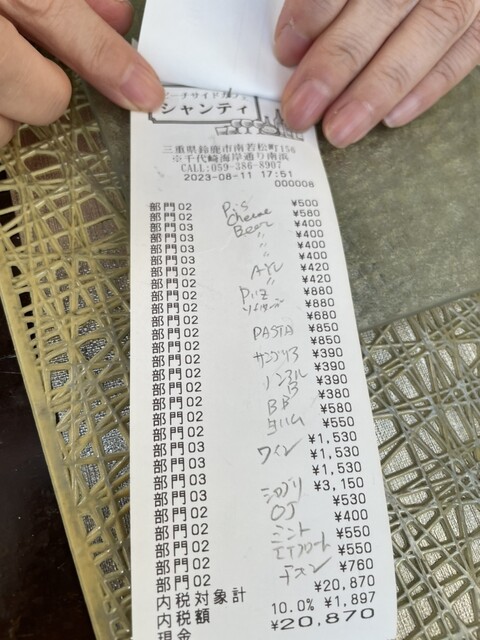 シャンティ
三重県鈴鹿市南若松町156
※千代崎海岸通り南浜
CALL:059-386-8907
2023-08-11 17:51
000008
部門02 ¥500
部門02 Cheese ¥580
部門03 Beer ¥400
部門03 〃 ¥400
部門03 〃 ¥400
部門03 ¥400
部門02 ¥420
部門02 〃 ¥420
部門02 ¥880
部門02 ¥880
部門02 ¥680
部門02 PASTA ¥850
部門02 ¥850
部門02 サングリア ¥390
部門02 ¥390
部門02 ノンアル B ¥390
部門02 ¥380
部門02 BB ¥580
部門02 ¥550
部門03 ワイン ¥1,530
部門03 ¥1,530
部門03 ¥1,530
部門03 ¥3,150
部門02 OJ ¥530
部門02 ¥400
部門02 ミント ¥550
部門02 ¥550
部門02 ¥760
内税対象計 ¥20,870
内税額 10.0% ¥1,897
現金 ¥20,870